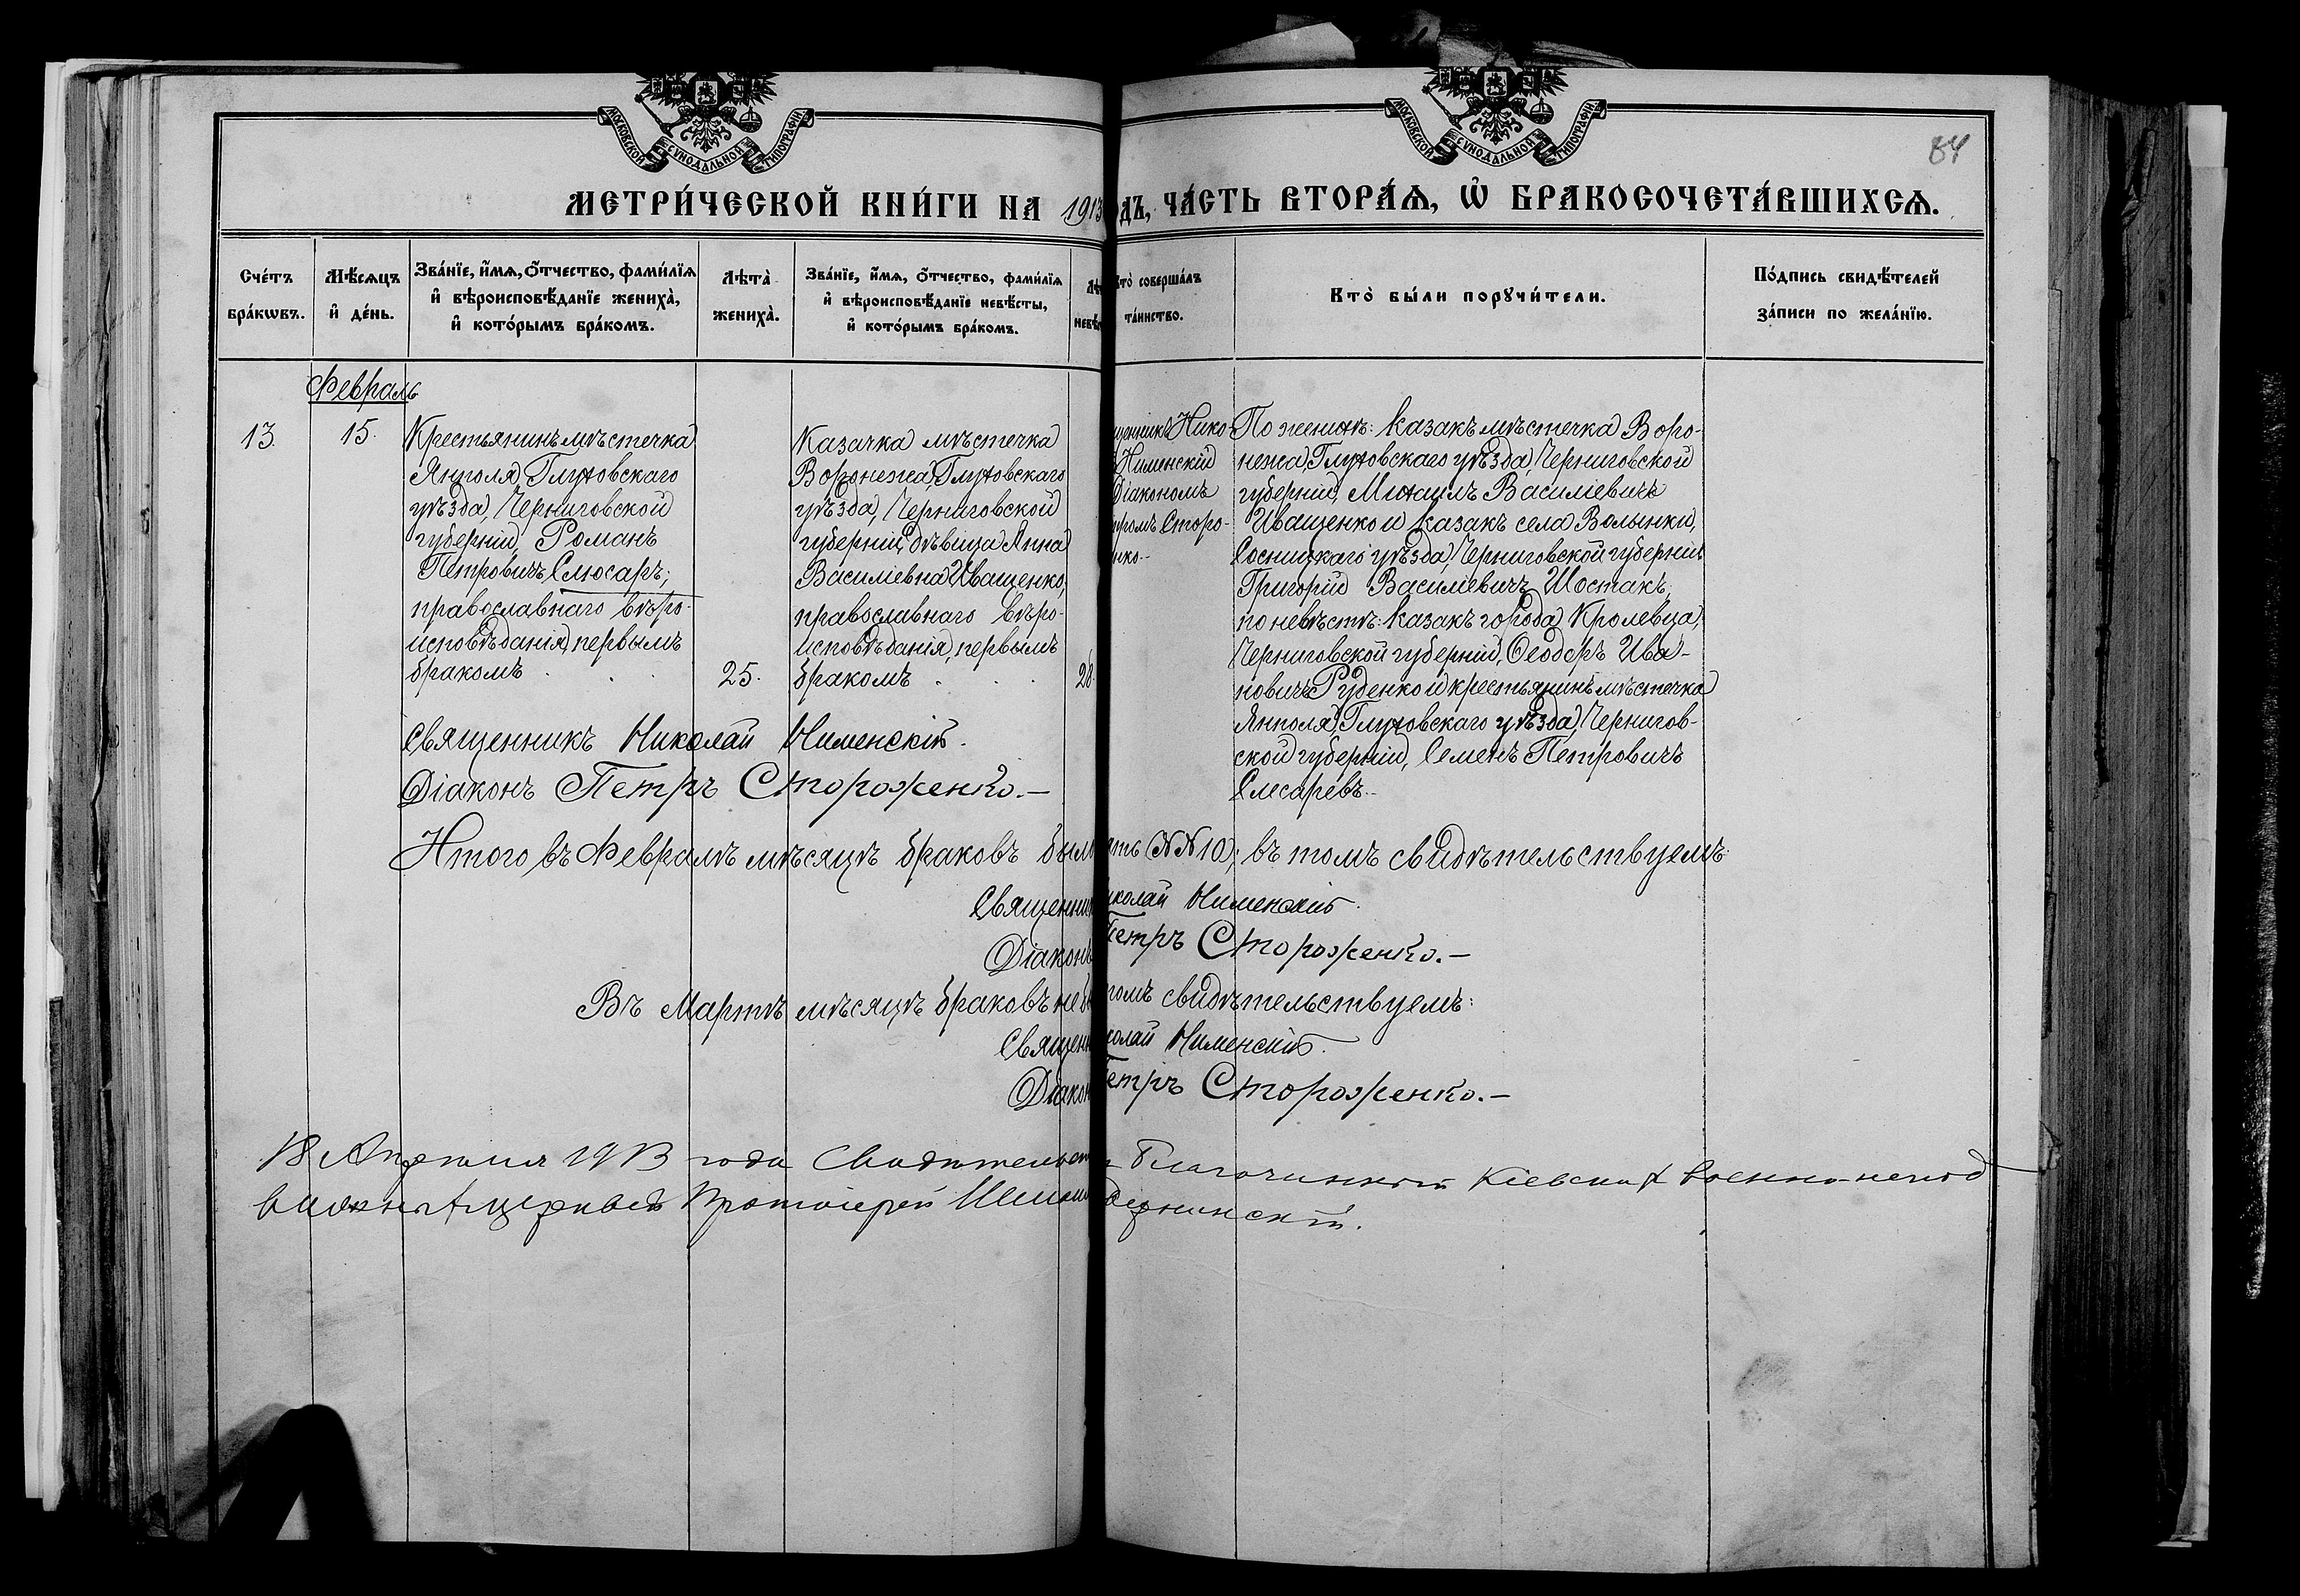 МОСКОВСКОЙ СѴНОДАЛЬНОЙ ТИПОГРАФІИ
МОСКОВСКОЙ СѴНОДАЛЬНОЙ ТИПОГРАФІИ
84
МЕТРИ́ЧЕСКОЙ КНИ́ГИ НА 1913
ОДЪ, ЧА́СТЬ ВТОРА́Ѧ, Ѽ БРАКОСОЧЕТА́ВШИХСѦ.
Сче́тъ
бра́кѡвъ.
Мѣ́сѧцъ
и҆ де́нь.
Зва́нїе, и҆́мѧ, ѻ҆́тчество, фами́лїѧ
и҆ вѣроисповѣ́данїе жениха̀,
и҆ кото́рымъ бра́комъ.
Лѣта̀
жениха̀.
Зва́нїе, и҆́мѧ, ѻ҆́тчество, фами́лїѧ
и҆ вѣроисповѣ́данїе невѣ́сты,
и҆ кото́рымъ бра́комъ.
Кто̀ соверша́лъ
та́инство.
Кто̀ бы́ли порꙋчи́тели.
По́дпись свидѣ́телей
за́писи по жела́нїю.
Февраль
13.
15.
Крестьянинъ мѣстечка
Янполя, Глуховскаго
уѣзда, Черниговской
губерніи, Романъ
Петровичъ Слюсаръ;
православнаго вѣро-
исповѣданія, первымъ
бракомъ . . .
25.
Казачка мѣстечка
Воронежа, Глуховскаго
уѣзда, Черниговской
губерніи, дѣвица Анна
Василіевна Иващенко,
православнаго вѣро-
исповѣданія, первымъ
бракомъ . .
28.
щенникъ Нико-
Нименскій
Діакономъ
тромъ Сторо-
нко.-
По женихѣ: казакъ мѣстечка Воро-
нежа, Глуховскаго уѣзда, Черниговской
губерніи, Михаилъ Василіевичъ
Иващенко и казакъ села Волынки,
Сосницкаго уѣзда, Черниговской губерніи
Григорій Василіевичъ Шостакъ,
по невѣстѣ: казакъ города Кролевца,
Черниговской губерніи, Ѳеодоръ Ива-
новичъ Руденко и крестьянинъ мѣстечка
Янполя, Глуховскаго уѣзда, Чернигов-
ской губерніи, Семенъ Петровичъ
Слесаревъ.-
Священникъ Николай Нименскій.
Діаконъ Петръ Стороженко.—
Итого въ Февралѣ мѣсяцѣ браковъ было
ять (№№ 10); въ томъ свидѣтельствуемъ:
Священник
иколай Нименскій.
Діаконъ
Петръ Стороженко.—
Въ Мартѣ мѣсяцѣ браковъ не бы
томъ свидѣтельствуемъ:
Священн
колай Нименскій.
Діакон
Петръ Стороженко.—
18 Апрѣля 1913 года Свидѣтельст
Благочинный Кіевских военно-непод
вижныхъ церквей Протоіерей